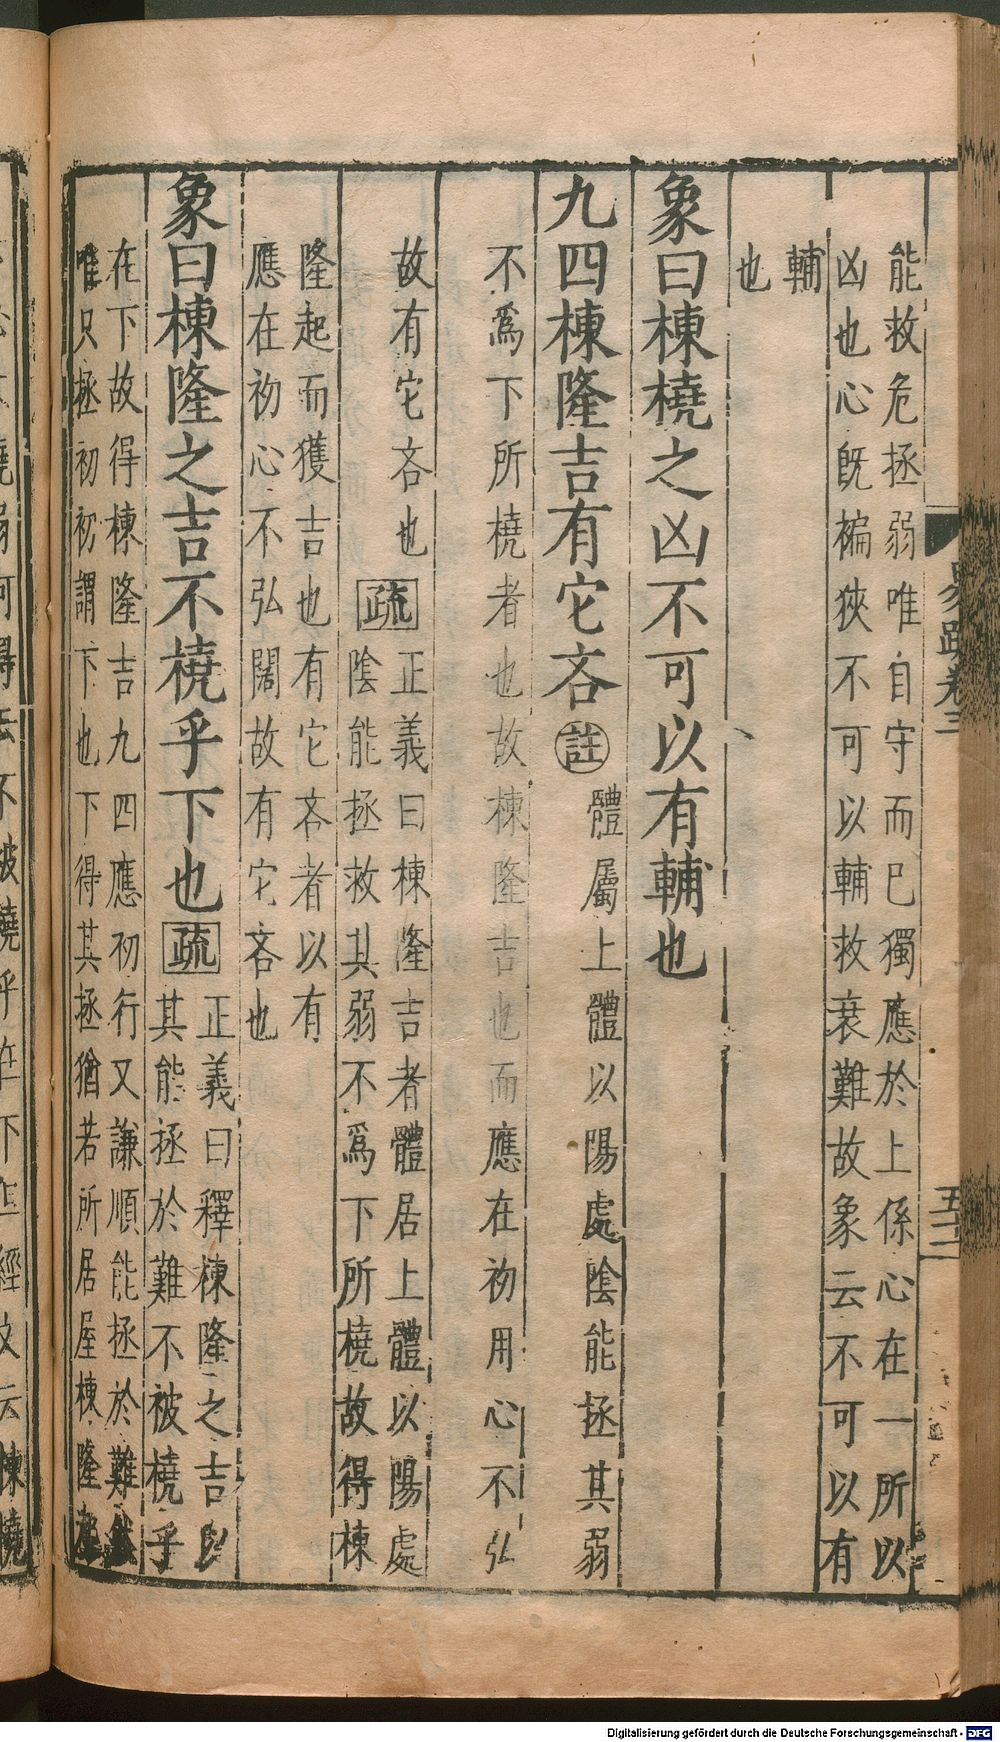 能救危拯弱唯自守而已獨應於上係心在一所以
凶也心旣褊狹不可以輔救衰難故象云不可以有
輔
也
象曰棟橈之凶不可以有輔也
九四棟隆吉有它吝註體屬上體以陽處陰能拯其弱
不爲下所橈者也故棟隆吉也而應在初用心不弘
故有它吝也疏正義曰棟隆吉者體居上體以陽處
陰能拯救其弱不爲下所橈故得棟
隆起而獲吉也有它吝者以有
應在初心不弘闊故有它吝也
象曰棟隆之吉不橈乎下也疏正義曰釋棟隆之吉以
其能拯於難不被橈乎
在下故得棟隆吉九四應初行又謙順能拯於難然
唯只拯初初謂下也下得其拯猶若所居屋棟隆起
易疏卷三
五三
Digitalisierung gefördert durch die Deutsche Forschungsgemeinschaft - DFG